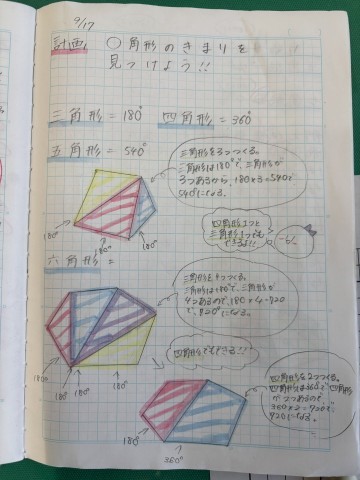 9/17
計画 ○角形のきまりを
見つけよう!!
三角形=180° 四角形=360°
五角形=540°
三角形を3つつくる。
三角形は180°で、三角形が
3つあるから、180×3=540で
540°になる。
180°
180°
180°
四角形1つと
三角形1つでも
できるよ!!
六角形=
三角形を4つつくる。
三角形は180°で、三角形が
4つあるので、180×4=720
で、720°になる。
180°
180°
180°
180°
四角形でもできる!!
四角形を2つつくる。
四角形は360°で、四角形
が2つあるので、
360×2=720で
720°になる。
180°
360°
180°